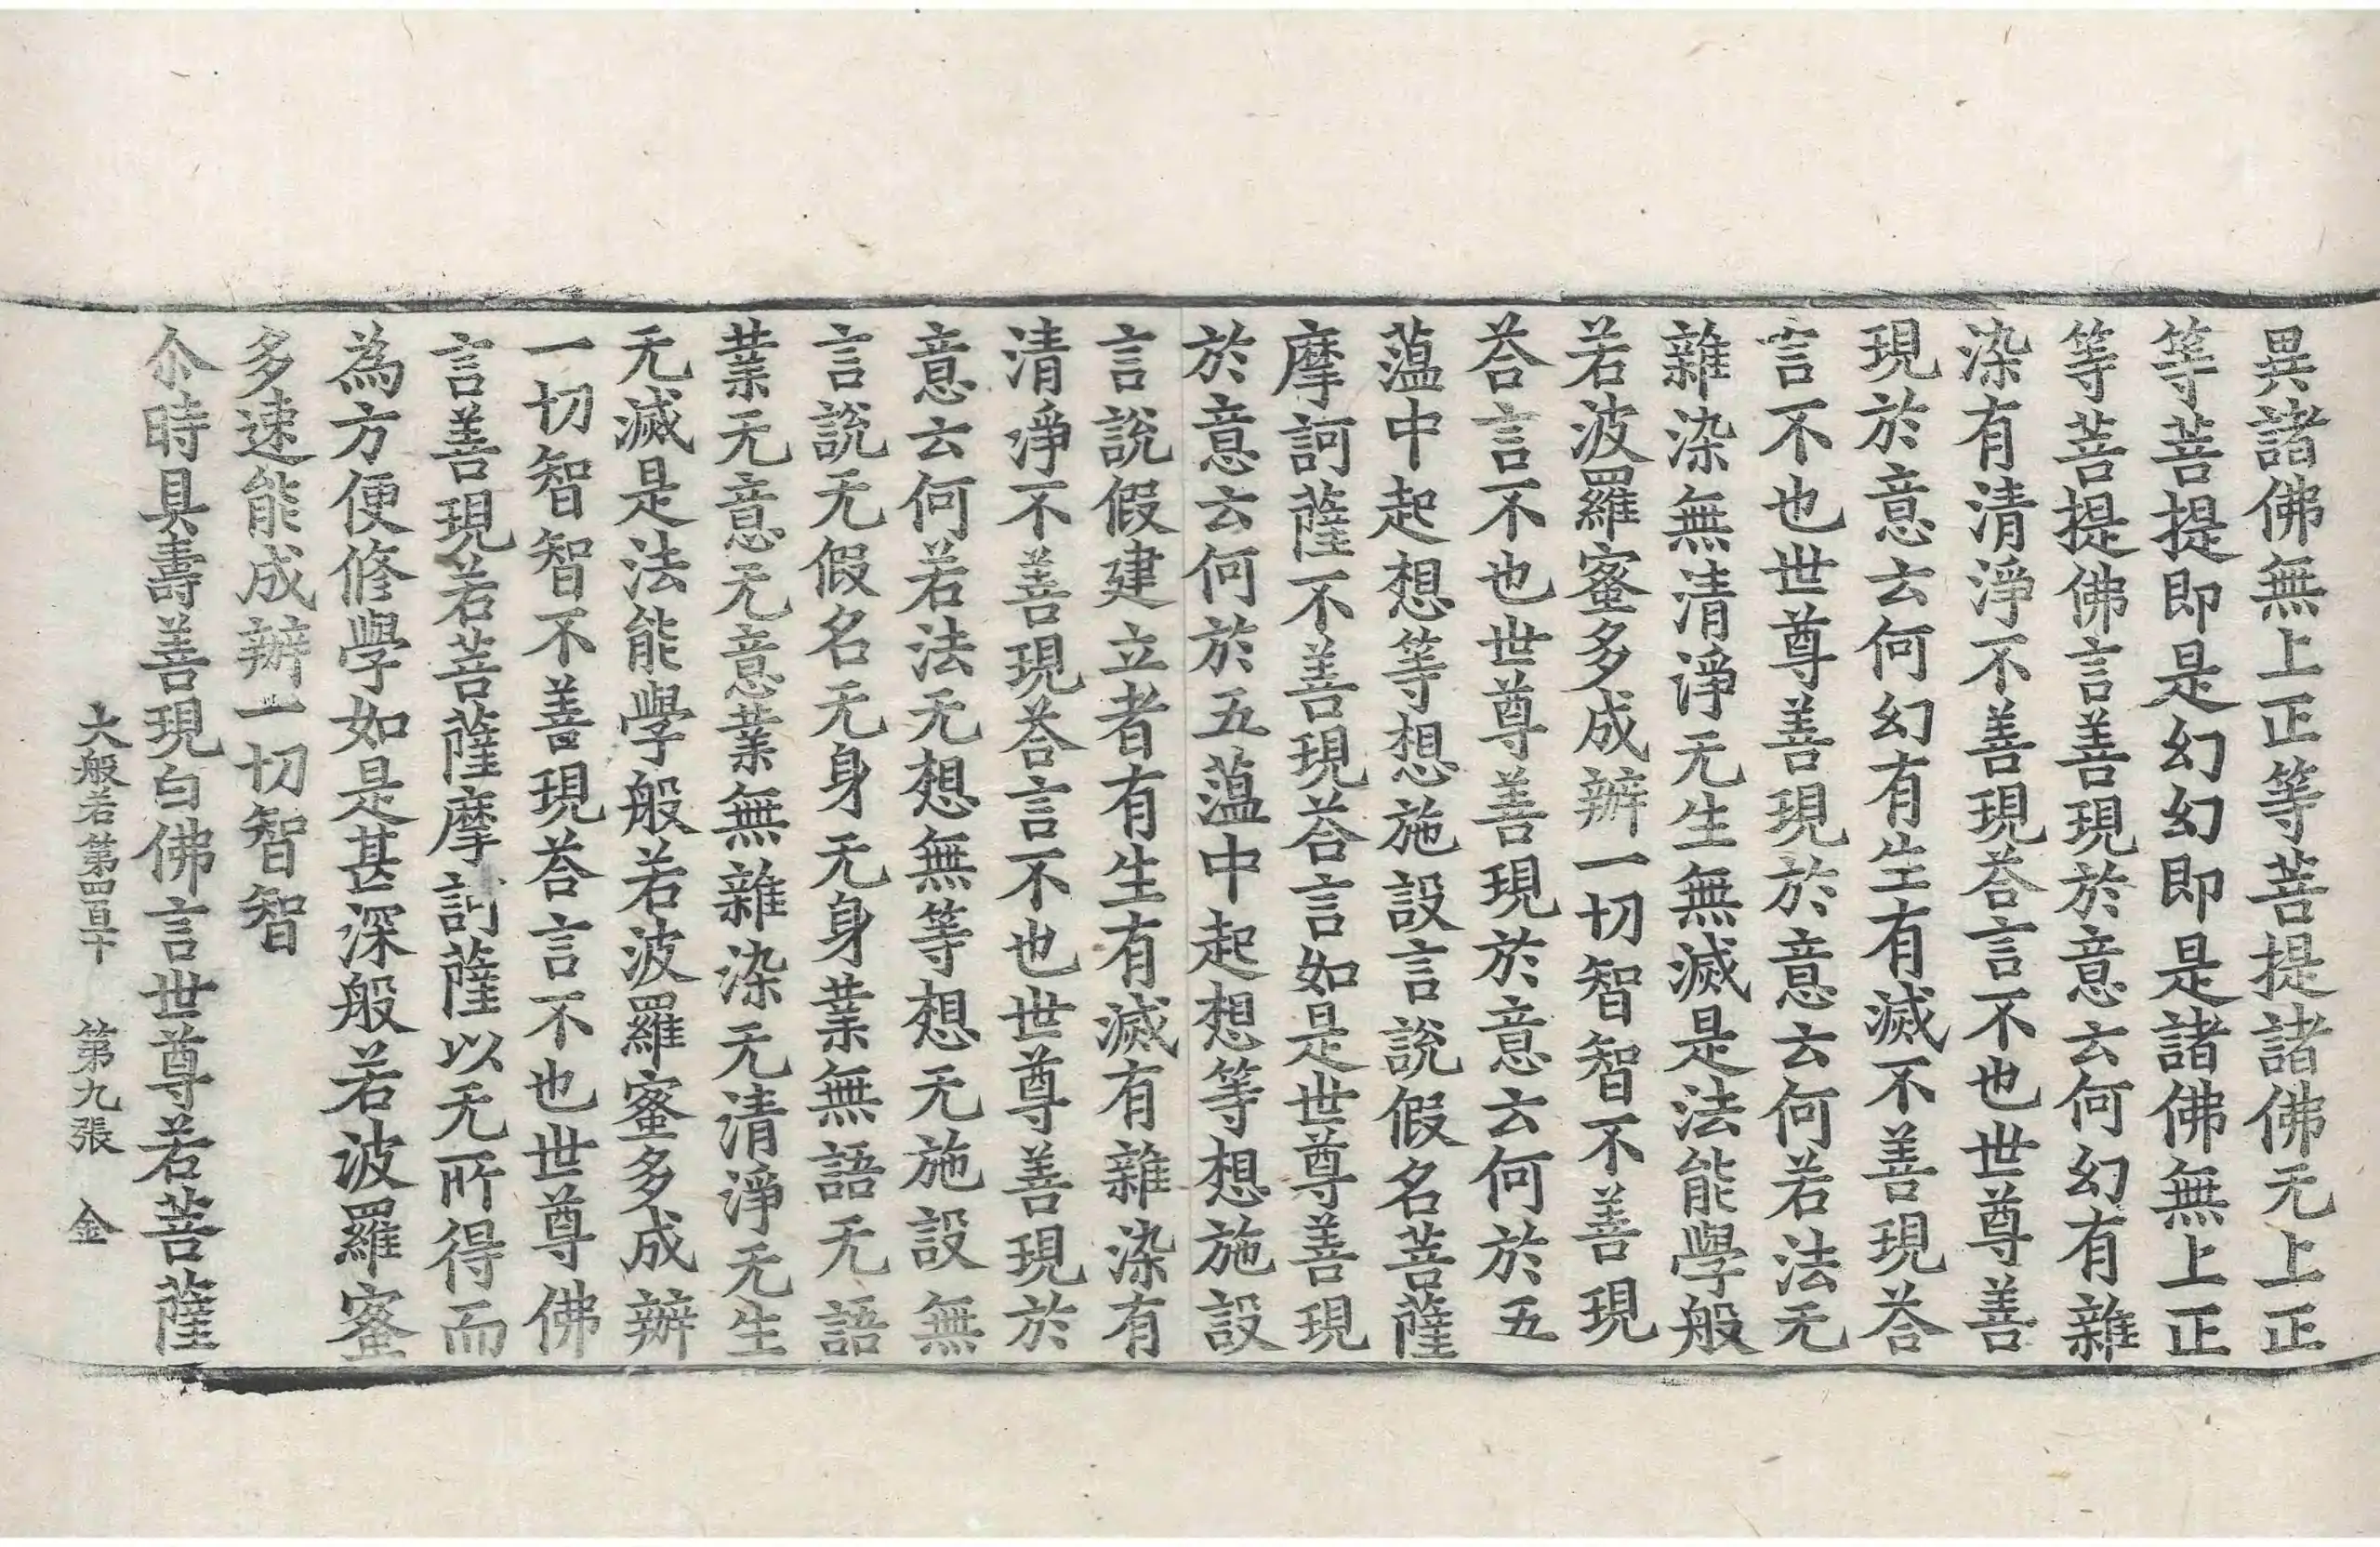 異諸佛無上正等菩提諸佛无上正
等菩提即是幻幻即是諸佛無上正
等菩提佛言善現於意云何幻有雜
染有清淨不善現荅言不也世尊善
現於意云何幻有生有滅不善現荅
言不也世尊善現於意云何若法无
雜染無清淨无生無滅是法能學般
若波羅蜜多成辨一切智智不善現
荅言不也世尊善現於意云何於五
薀中起想等想施設言說假名菩薩
摩訶薩不善現荅言如是世尊善現
於意云何於五薀中起想等想施設
言說假建立者有生有滅有雜染有
清淨不善現荅言不也世尊善現於
意云何若法无想無等想无施設無
言說无假名无身无身業無語无語
業无意无意業無雜染无清淨无生
无滅是法能學般若波羅蜜多成辨
一切智智不善現荅言不也世尊佛
言善現若菩薩摩訶薩以无所得而
為方便修學如是甚深般若波羅蜜
多速能成辨一切智智
尒時具壽善現白佛言世尊若菩薩
大般若第四百十　第九張　金